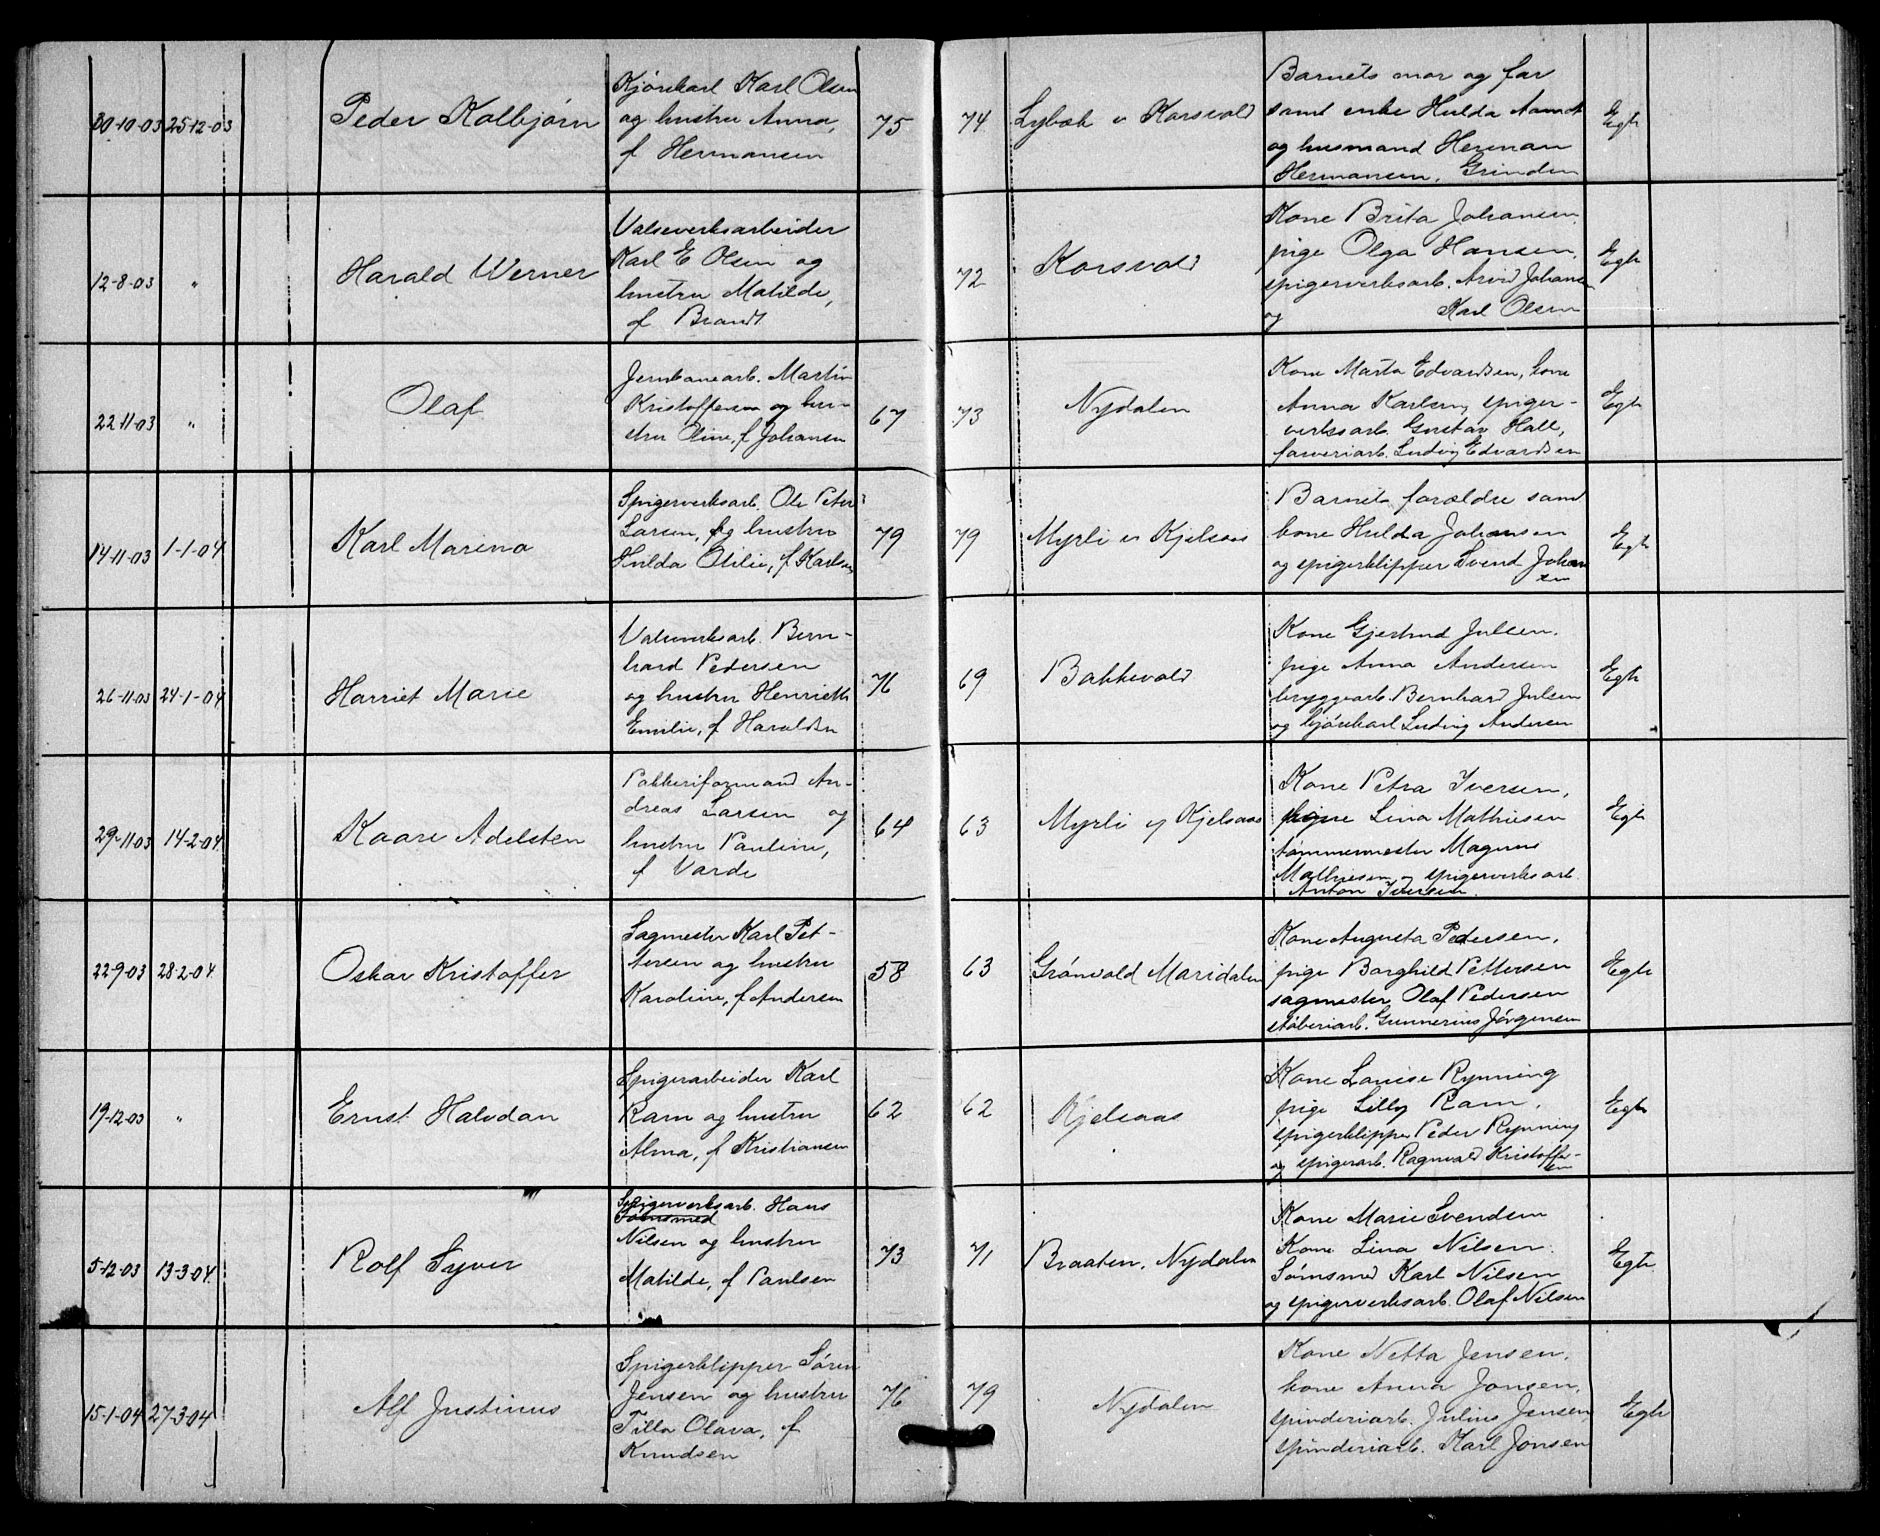 30-10-03 25-12-03 Peder Kolbjørn
Kjørekarl Karl Olsen
og hustru Anna,
f Hermansen
75 74 Lybæk v Korsvold
Barnets mor og far
samt enke Hulda
og husmand Herman
Hermansen, Grinden
Egte
12-8-03 " Harald Werner
Valseverksarbeider
Karl E Olsen og
hustru Matilde,
f Brandt
72 Korsvold
Kone Brita Johansen
pige Olga Hansen,
spigerverksarb. Arvid Johansen
og Karl Olsen
Egte
22-11-03 " Olaf
Jernbanearb. Martin
Kristoffersen og hu-
stru Oline, f Johansen
67 73 Nydalen
Kone Marta Edvardsen, kone
Anna Karlsen, spiger-
verksarb. Gustav Hall,
farveriarb. Ludvig Edvardsen
Egte
14-11-03 1-1-04 Karl Marino
Spigerverksarb. Ole Peter
Larsen, og hustru
Hulda Otilie, f Karlsen
79 79 Myrli v Kjelsaas
Barnets forældre samt
kone Hulda Johansen
og spigerklipper Svend Johan
sen
Egte
26-11-03 24-1-04 Harriet Marie
Valseverksarb. Bern-
hard Pedersen
og hustru Henriette
Emilie, f Haraldsen
76 69 Bakkevold
Kone Gjertrud Julsen,
pige Anna Andersen
bryggearb. Bernhard Julsen
og kjørekarl Ludvig Andersen
Egte
29-11-03 14-2-04 Kaare Adelsten
Pakkeriformand An-
dreas Larsen og
hustru Pauline,
f Varde
64 63 Myrli v Kjelsaas
Kone Petra Iversen,
pige Lina Mathiesen
tømmermester Magnus
Mathiesen og spigerverksarb.
Anton Iversen.
Egte
22-9-03 28-2-04 Oskar Kristoffer
Sagmester Karl Pet-
tersen og hustru
Karoline, f Andersen
58 63 Grønvold Maridalen
Kone Augusta Pedersen,
pige Borghild Pettersen
sagmester Olaf Pedersen
støberiarb. Gunnerius Jørgensen
Egte
19-12-03 " Ernst Halvdan
Spigerarbeider Karl
Ram og hustru
Alma, f Kristiansen
62 62 Kjelsaas
Kone Louise Rynning
pige Lilly Ram,
spigerklipper Peder Rynning
og spigerarb. Ragnvald Kristoffer-
sen
Egte
5-12-03 13-3-04 Rolf Syver
Spigerverksarb. Hans
Sømsmed
Nilsen og hustru
Matilde, f Paulsen
73 71 Braaten, Nydalen
Kone Marie Svendsen
Kone Lina Nilsen
Sømsmed Karl Nilsen
og spigerverksarb. Olaf Nilsen
Egte
15-1-04 27-3-04 Alf Justinus
Spigerklipper Søren
Jensen og hustru
Tilla Olava, f
Knudsen
76 79 Nydalen
Kone Netta Jensen,
kone Anna Jonsen,
spinderiarb. Julius Jensen
spinderiarb. Karl Jonsen
Egte